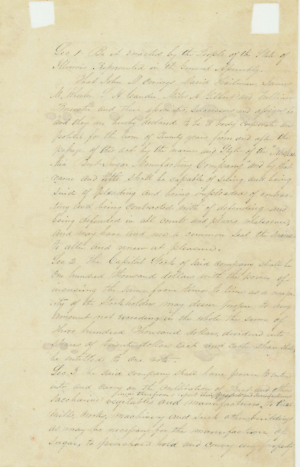 Sec. 1 Be it enacted by the People of the State of
Illinois Represented in the General Assembly.
That John M
and their associates successors and assigns
and they are hereby declared to be a body corporate and
politic for the term of twenty years from and after the
passage of this act by the name and style of the
Sugar Manufacturing Company and by that
name and title shall be capable of suing and being
sued of pleading and being impleaded of contrac
ting and being contracted with of defending and
being defended in all courts and places whatsoever
and may have and use a common seal the same
to alter and renew at pleasure.
Sec 2. The Capital Stock of said company shall be
One hundred Thousand dollars with the power of in
creasing the same from time to time as a major
ity of the Stockholders may deem proper to any
amount not exceeding in the whole the sum of
three hundred Thousand dollars divided into
shares of each and each share shall
be entitled to one vote.
Sec 3. The said company shall have power to culti
vate and carry on the cultivation of and other
Saccharine vegetables and manufacture, to
mills, works, machinery and such other buildings
as may be necessary for the manufacture of
Sugar, to purchase hold and convey any